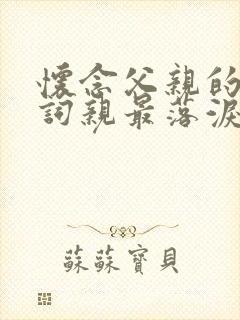 懷念父親的
詞親最落淚
蘇蘇寶貝